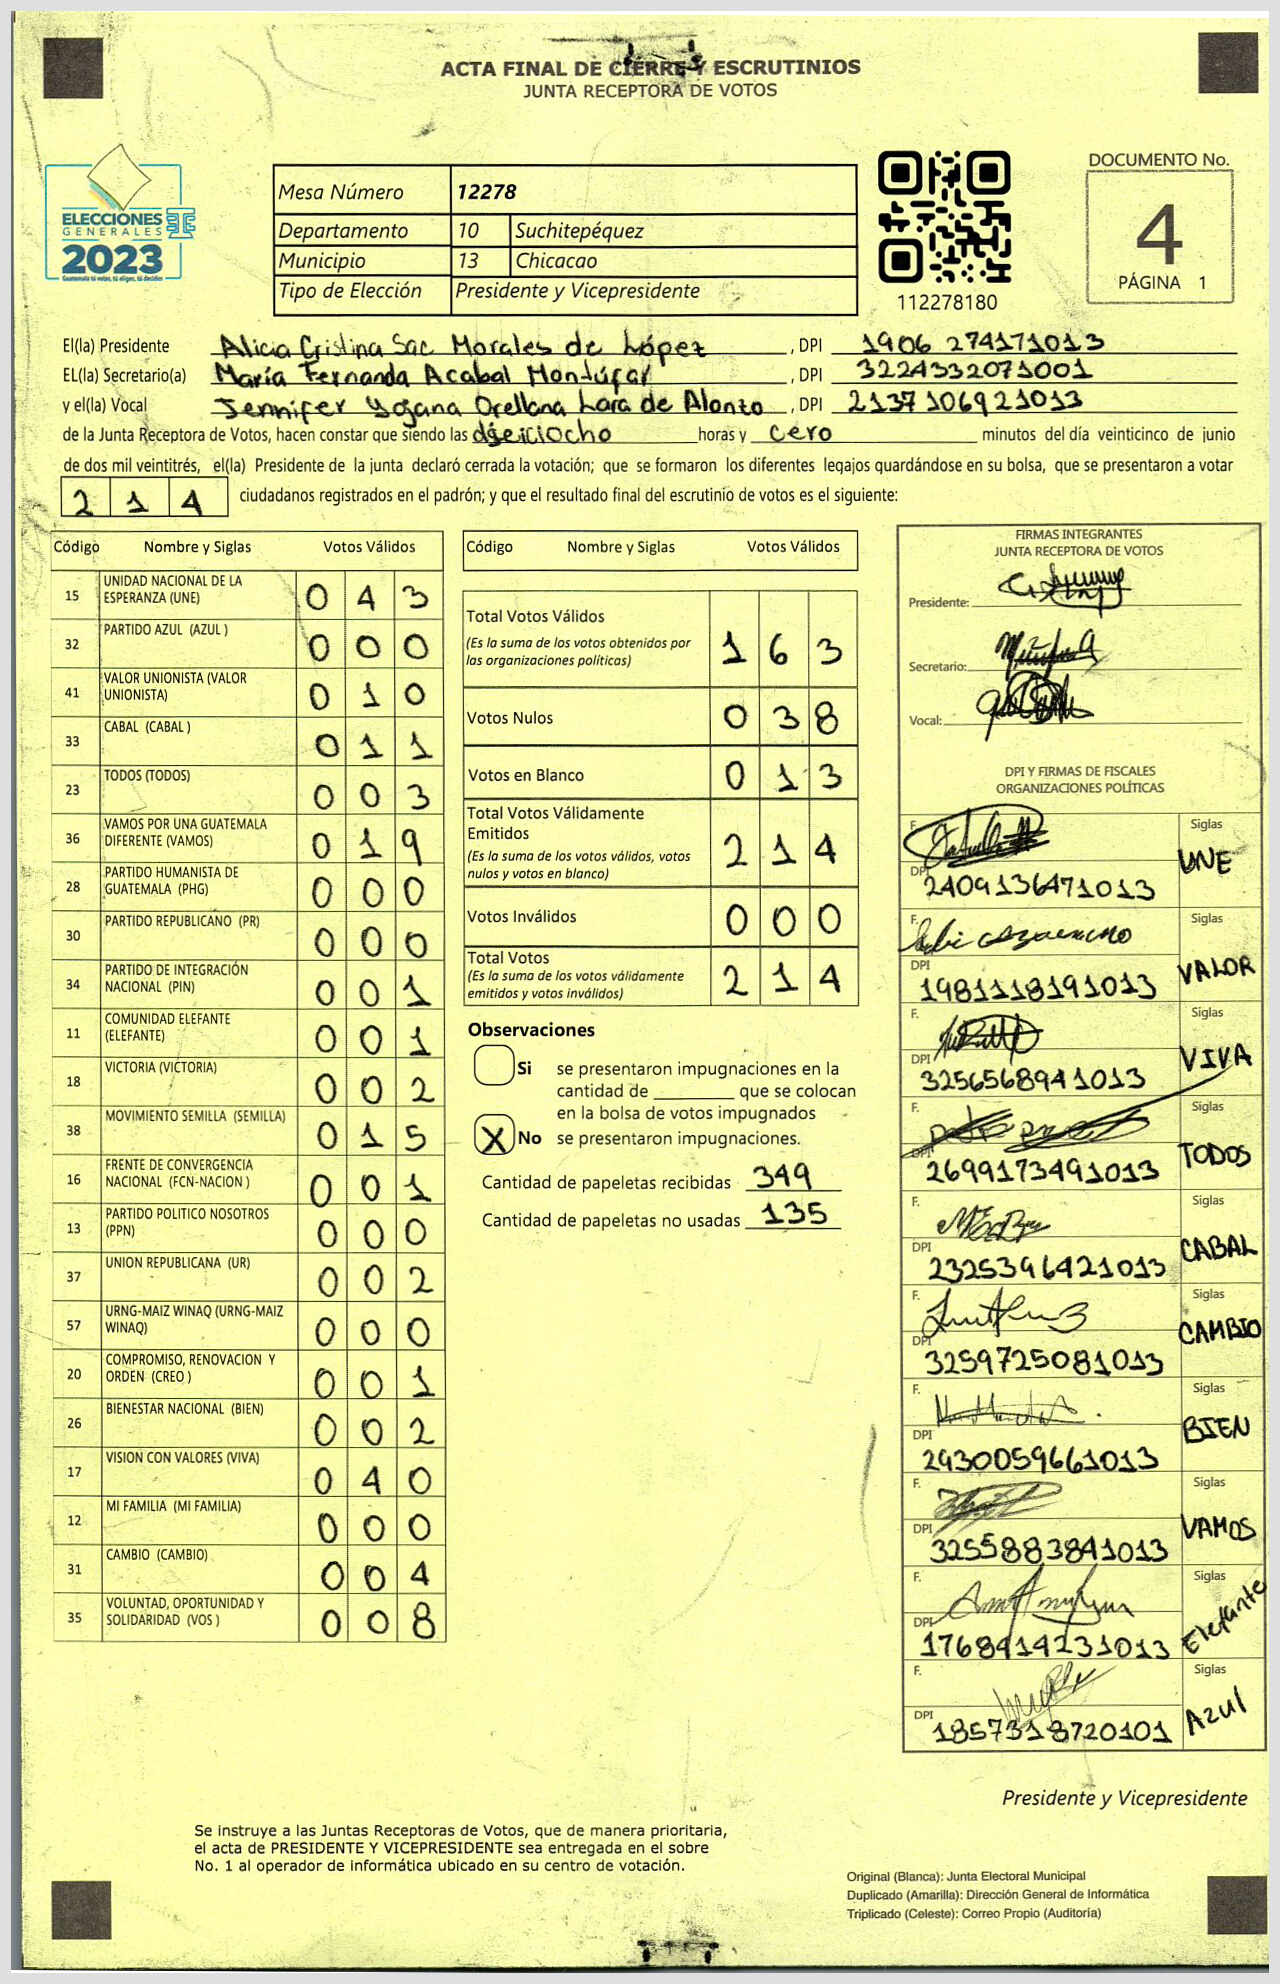 ACTA FINAL DE CIERRE Y ESCRUTINIOS
JUNTA RECEPTORA DE VOTOS
ELECCIONES
GENERALES
2023
Guatemala tú votas, tú eliges, tú decides
Mesa Número 12278
Departamento 10 Suchitepéquez
Municipio 13 Chicacao
Tipo de Elección Presidente y Vicepresidente
112278180
DOCUMENTO No.
4
PÁGINA 1
El(la) Presidente Alicia Cristina Sac Morales de López, DPI 1906 274171013
EL(la) Secretario(a) María Fernanda Acabal Montúfar, DPI 3224332071001
y el(la) Vocal Jennifer Yojana Orellana Lara de Alonzo, DPI 2137106921013
de la Junta Receptora de Votos, hacen constar que siendo las dieciocho horas y cero minutos del día veinticinco de junio
de dos mil veintitrés, el(la) Presidente de la junta declaró cerrada la votación; que se formaron los diferentes legajos quardándose en su bolsa, que se presentaron a votar
2 1 4 ciudadanos registrados en el padrón; y que el resultado final del escrutinio de votos es el siguiente:
Código Nombre y Siglas Votos Válidos
15 UNIDAD NACIONAL DE LA ESPERANZA (UNE) 0 4 3
32 PARTIDO AZUL (AZUL ) 0 0 0
41 VALOR UNIONISTA (VALOR UNIONISTA) 0 1 0
33 CABAL (CABAL ) 0 1 1
23 TODOS (TODOS) 0 0 3
36 VAMOS POR UNA GUATEMALA DIFERENTE (VAMOS) 0 1 9
28 PARTIDO HUMANISTA DE GUATEMALA (PHG) 0 0 0
30 PARTIDO REPUBLICANO (PR) 0 0 0
34 PARTIDO DE INTEGRACIÓN NACIONAL (PIN) 0 0 1
11 COMUNIDAD ELEFANTE (ELEFANTE) 0 0 1
18 VICTORIA (VICTORIA) 0 0 2
38 MOVIMIENTO SEMILLA (SEMILLA) 0 1 5
16 FRENTE DE CONVERGENCIA NACIONAL (FCN-NACION ) 0 0 1
13 PARTIDO POLITICO NOSOTROS (PPN) 0 0 0
37 UNION REPUBLICANA (UR) 0 0 2
57 URNG-MAIZ WINAQ (URNG-MAIZ WINAQ) 0 0 0
20 COMPROMISO, RENOVACION Y ORDEN (CREO ) 0 0 1
26 BIENESTAR NACIONAL (BIEN) 0 0 2
17 VISION CON VALORES (VIVA) 0 4 0
12 MI FAMILIA (MI FAMILIA) 0 0 0
31 CAMBIO (CAMBIO) 0 0 4
35 VOLUNTAD, OPORTUNIDAD Y SOLIDARIDAD (VOS ) 0 0 8
Código Nombre y Siglas Votos Válidos
Total Votos Válidos 1 6 3
(Es la suma de los votos obtenidos por
las organizaciones políticas)
Votos Nulos 0 3 8
Votos en Blanco 0 1 3
Total Votos Válidamente
Emitidos 2 1 4
(Es la suma de los votos válidos, votos
nulos y votos en blanco)
Votos Inválidos 0 0 0
Total Votos 2 1 4
(Es la suma de los votos válidamente
emitidos y votos inválidos)
Observaciones
Si se presentaron impugnaciones en la
cantidad de ________ que se colocan
en la bolsa de votos impugnados
X No se presentaron impugnaciones.
Cantidad de papeletas recibidas 349
Cantidad de papeletas no usadas 135
FIRMAS INTEGRANTES
JUNTA RECEPTORA DE VOTOS
Presidente:
Secretario:
Vocal:
DPI Y FIRMAS DE FISCALES
ORGANIZACIONES POLÍTICAS
F. Siglas
DPI 2409136471013 UNE
F. Siglas
DPI 1981118191013 VALOR
F. Siglas
DPI 3256568941013 VIVA
F. Siglas
DPI 2699173491013 TODOS
F. Siglas
DPI 2325396421013 CABAL
F. Siglas
DPI 3259725081013 CAMBIO
F. Siglas
DPI 2930059661013 BIEN
F. Siglas
DPI 3255883841013 VAMOS
F. Siglas
DPI 1768414231013 Elefante
F. Siglas
DPI 1857318720101 Azul
Presidente y Vicepresidente
Se instruye a las Juntas Receptoras de Votos, que de manera prioritaria,
el acta de PRESIDENTE Y VICEPRESIDENTE sea entregada en el sobre
No. 1 al operador de informática ubicado en su centro de votación.
Original (Blanca): Junta Electoral Municipal
Duplicado (Amarilla): Dirección General de Informática
Triplicado (Celeste): Correo Propio (Auditoría)